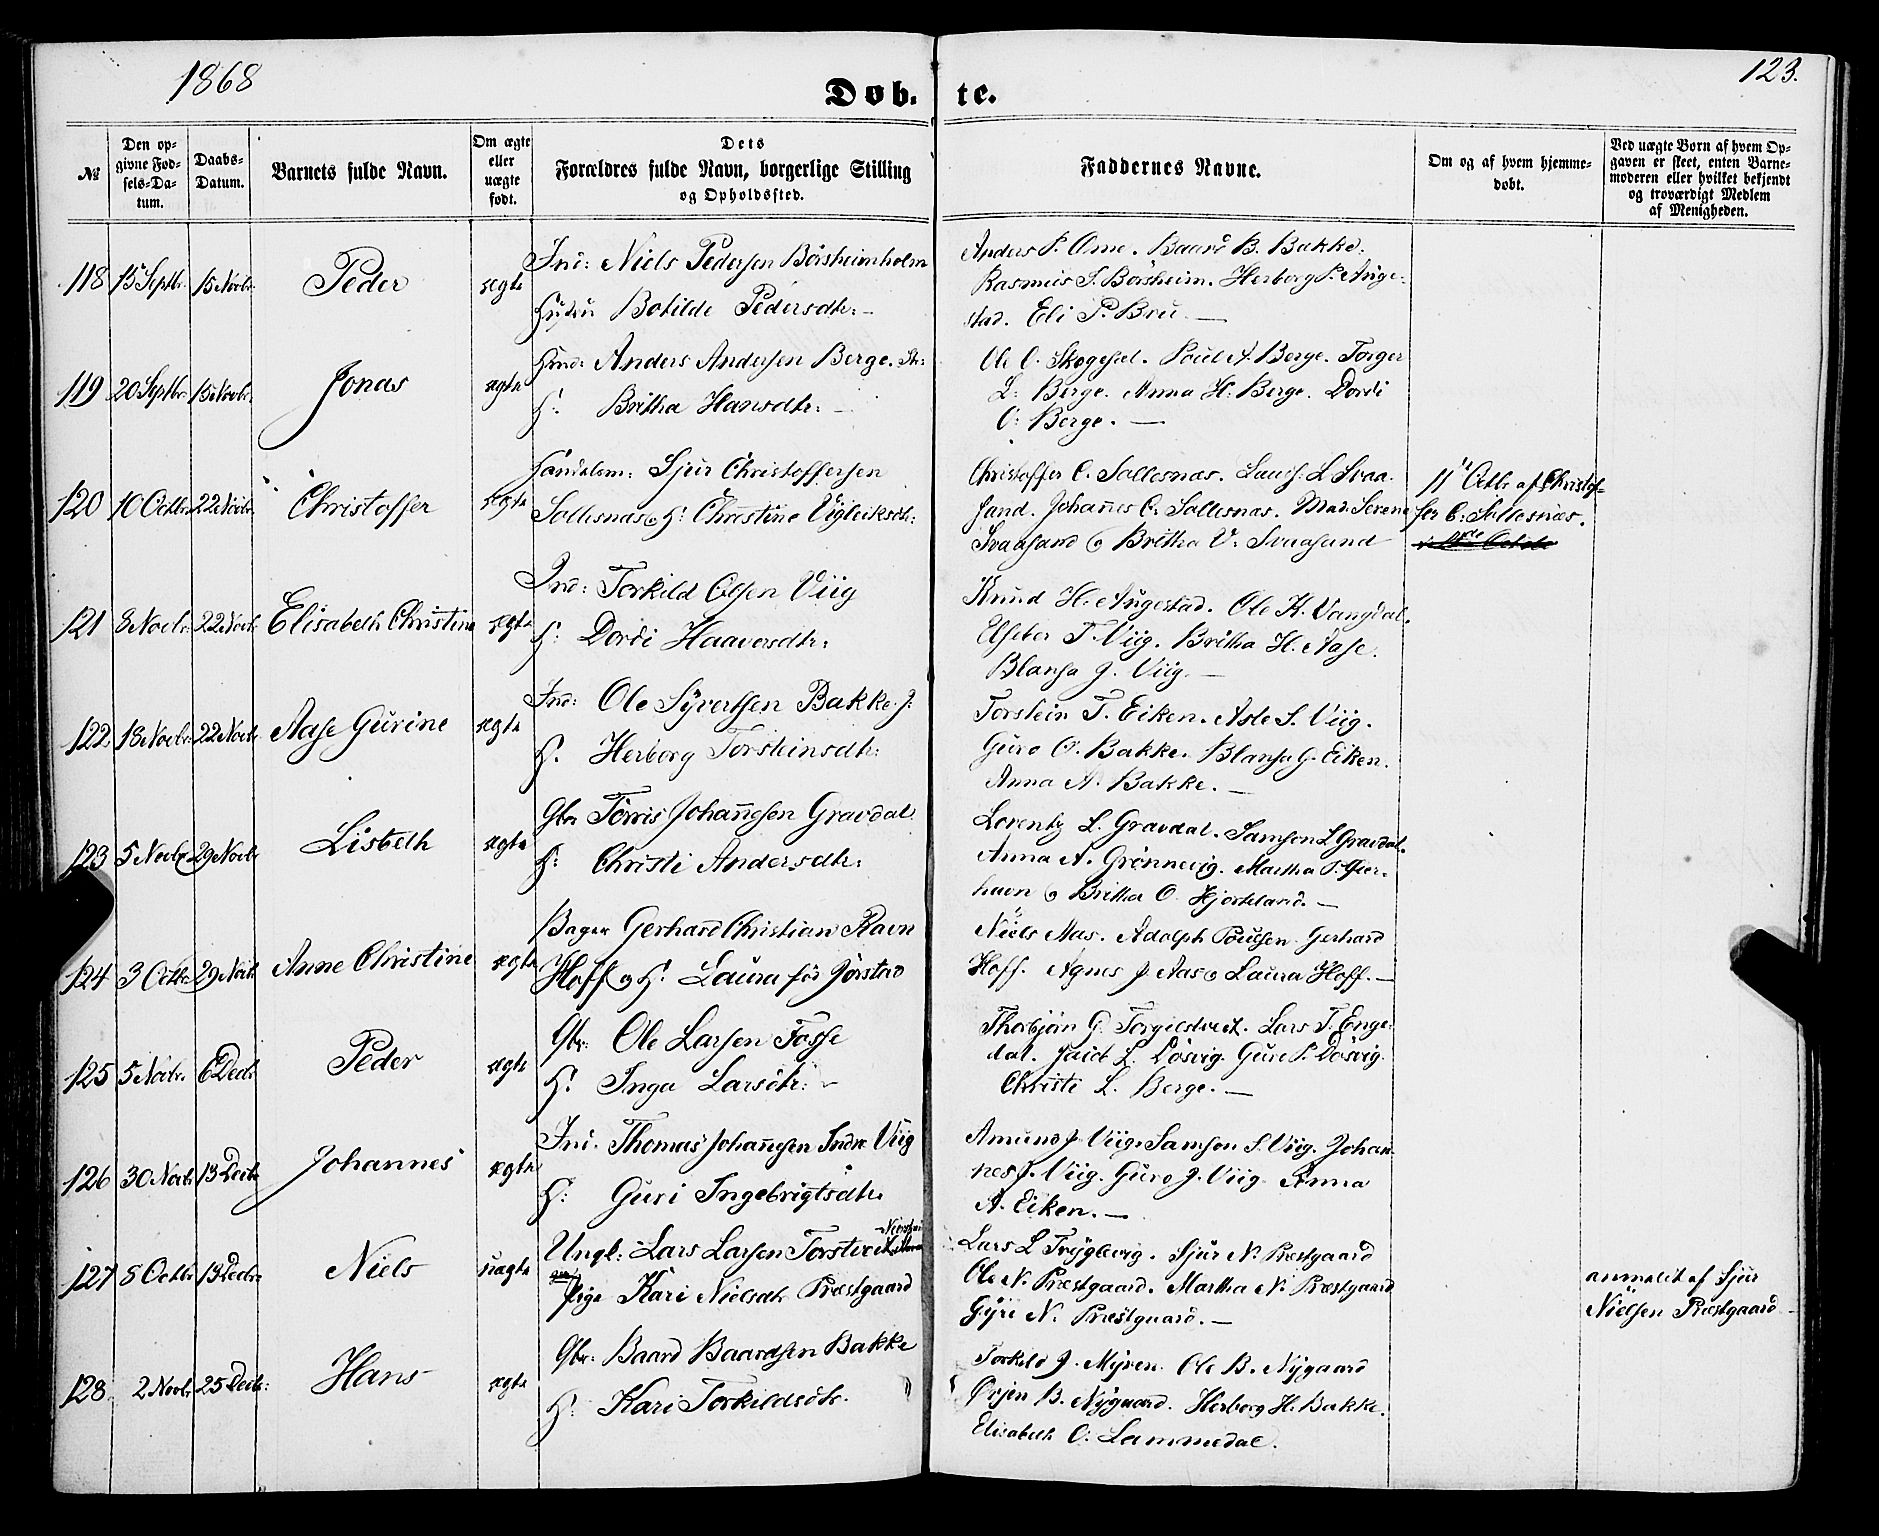 1868
123.
Døb. te.
№
Den op-
givne Fød-
sels-Da-
tum.
Daabs-
Datum.
Barnets fulde Navn.
Om ægte
eller
uægte
født.
Dets
Forældres fulde Navn, borgerlige Stilling
og Opholdssted.
Faddernes Navne.
Om og af hvem hjemme-
døbt.
Ved uægte Børn af hvem Op-
gaven er skeet, enten Barne-
moderen eller hvilket bekjendt
og troværdigt Medlem
af Menigheden.
118 15 Septbr. 15 Novbr. Peder ægte
Ind: Niels Pedersen Børsheimholm
Hustru Botilde Pedersdtr: —
Anders P. Ome. Baard B. Bakke.
Rasmus T. Børsheim. Herborg P. Auge-
stad. Eli P. Bru. —
119 20 Septbr. 15 Novbr. Jonas ægte
Huusmd: Anders Andersen Berge. Str:
H: Britha Hansdtr: —
Ole O. Skogesæl. Poul A. Berge. Torger
L: Berge. Anna H: Berge. Dordi
O: Berge. —
120 10 Octbr. 22 Novbr. Christoffer ægte
Handelsm: Sjur Christoffersen
Sallesnæs og H: Christine Vigleiksdtr:
Christoffer C. Sallesnæs. Lauss. L Svaa-
sand. Johannes C. Sallesnæs. Mad. Serena
Svaasand og Britha V. Svaasand
11te Octbr af Christof-
fer C: Sallesnæs.
121 8 Novbr. 22 Novbr. Elisabeth Christine ægte
Ind: Torkild Olsen Viig
H: Dordi Haaversdtr:
Knud H. Augestad. Ole K. Vangdal.
Elseber T. Viig. Britha H. Aase.
Blansa J. Viig. —
122 18 Novbr. 22 Novbr. Aase Gurine ægte
Ind: Ole Syvertsen Bakke J:
H. Herborg Torsteinsdtr:
Torstein T. Eiken. Asle S. Viig.
Guro O. Bakke. Blansa G. Eiken.
Anna A. Bakke. —
123 5 Novbr 29 Novbr Lisbeth ægte
Gbr Tørris Johannesen Gravdal
H: Christi Andersdtr:
Lorentz L. Gravdal. Samson L Gravdal.
Anna A. Grønnevig. Martha
havn og Britha O. Hjorteland. —
124 3 Octbr. 29 Novbr. Anne Christine ægte
Bager Gerhard Christian Ravn
Hoff og H: Laura før Jørstad
Niels Aas. Adolph Poulsen. Gerhard
Hoff. Agnes J Aas og Laura Hoff. —
125 5 Novbr. 6 Decbr Peder ægte
Gbr: Ole Larsen Fosse
H. Inga Larsdtr: —
Thorbjørn G. Torgilstveit. Lars T. Enge-
dal. Jaid L. Døsvig. Gure P. Døsvig.
Christi L. Berge. —
126 30 Novbr 13 Decbr Johannes ægte
Ind. Thomas Johannesen Indre Viig
H: Guri Ingebrigtsdtr.
Amund J. Viig. Samson S. Viig. Johan-
nes J. Viig. Guro J. Viig. Anna
A. Eiken. —
127 5 Octbr 13 Decbr Niels uægte
Ungk: Lars Larsen Torstveit
Pige Kari Nielsdtr Præstgaard
Lars L Tryglevig. Sjur N. Præstgaard
Ole N. Præstgaard. Martha N. Præstgaard
Gyri N. Præstgaard. —
anmeldt af Sjur
Nielsen Præstgaard —
128. 2 Novbr. 25 Decbr: Hans ægte
Gbr. Baard Baardsen Bakke
H: Kari Torkildsdtr.
Torkild J. Myren. Ole B. Nygaard
Ørjen B. Nygaard. Herborg H. Bakke.
Elisabeth O. Lammedal.